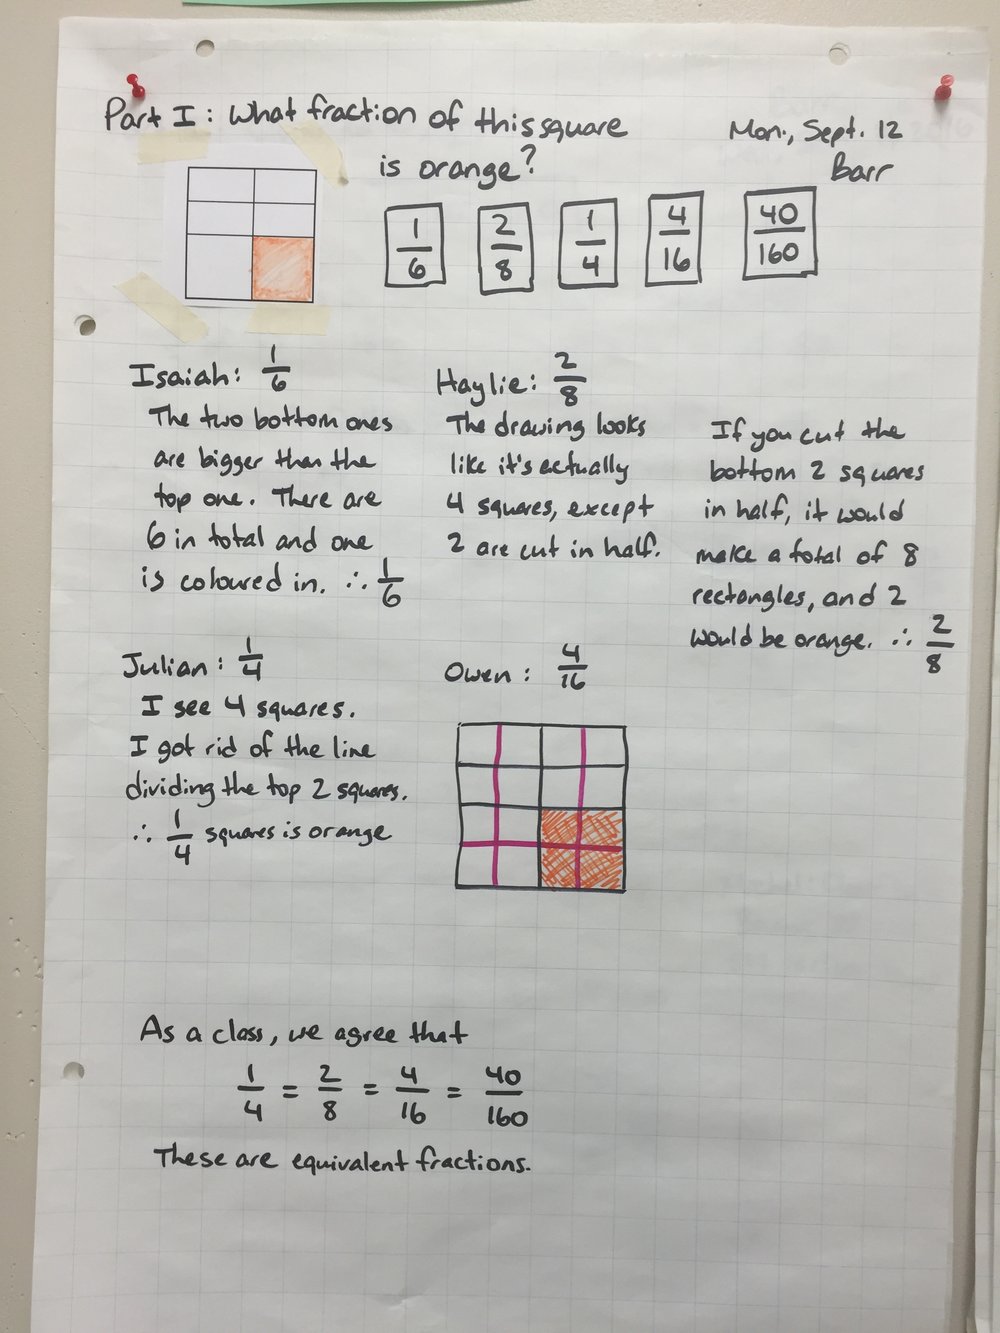 Part I: What fraction of this square
is orange?
Mon., Sept. 12
Barr
1/6 2/8 1/4 4/16 40/160
Isaiah: 1/6
The two bottom ones
are bigger than the
top one. There are
6 in total and one
is coloured in. ∴ 1/6
Haylie: 2/8
The drawing looks
like it's actually
4 squares, except
2 are cut in half.
If you cut the
bottom 2 squares
in half, it would
make a total of 8
rectangles, and 2
would be orange. ∴ 2/8
Julian: 1/4
I see 4 squares.
I got rid of the line
dividing the top 2 squares.
∴ 1/4 squares is orange
Owen: 4/16
As a class, we agree that
1/4 = 2/8 = 4/16 = 40/160
These are equivalent fractions.